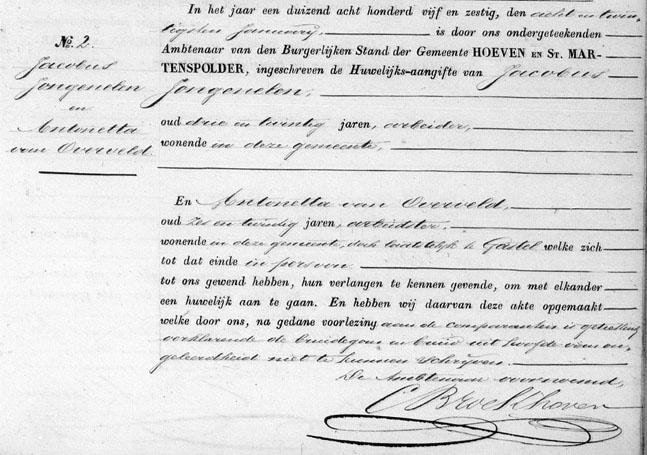 In het jaar een duizend acht honderd vijf en zestig, den acht en twin-
tigsten Januarij, is door ons ondergeteekenden
Ambtenaar van den Burgerlijken Stand der Gemeente HOEVEN EN ST. MAR-
TENSPOLDER, ingeschreven de Huwelijks-aangifte van Jacobus
Jongenelen,
oud drie en twintig jaren, arbeider,
wonende in deze gemeente,
No. 2.
Jacobus
Jongenelen
en
Antonetta
van Overveld.
En Antonetta van Overveld,
oud zes en twintig jaren, arbeidster,
wonende in deze gemeente, doch laatstelijk te Gastel welke zich
tot dat einde in persoon
tot ons gewend hebben, hun verlangen te kennen gevende, om met elkander
een huwelijk aan te gaan. En hebben wij daarvan deze akte opgemaakt
welke door ons, na gedane voorlezing aan de comparanten is geteekend
verklarende de bruidegom en bruid uit hoofde van on-
geleerdheid niet te kunnen schrijven.
De Ambtenaar voornoemd,
C Broekhoven